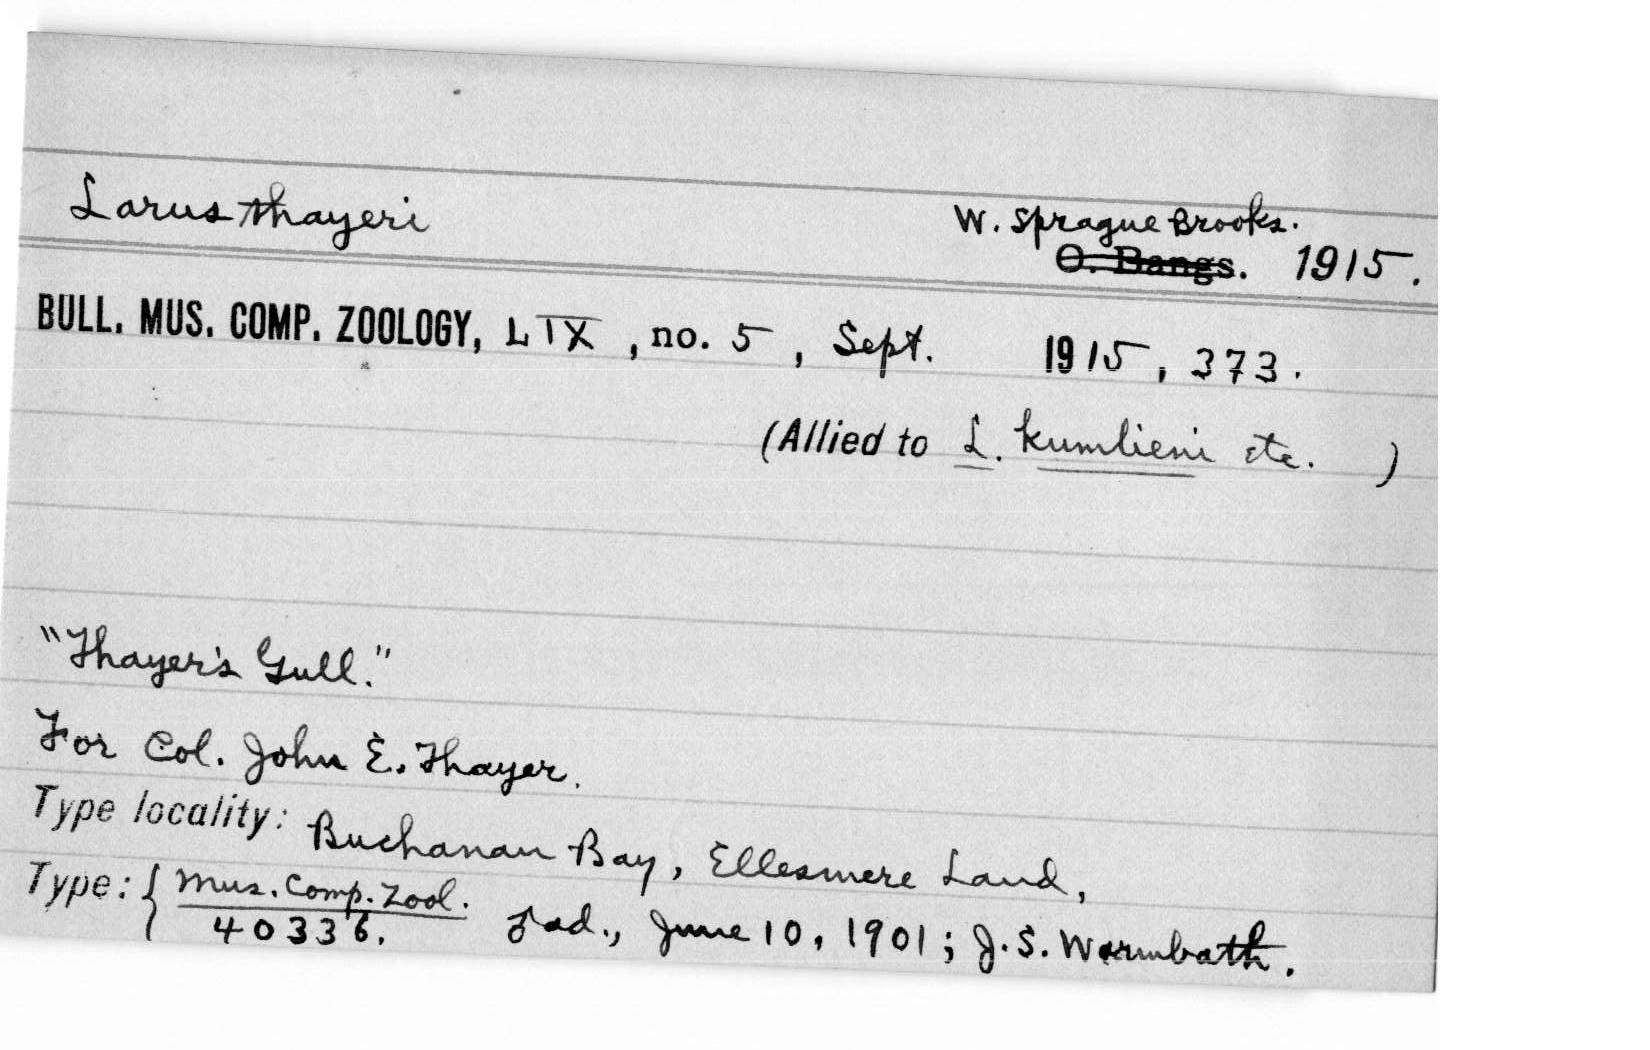 Larus thayeri
W. Sprague Brooks.
O. Bangs. 1915.
BULL. MUS. COMP. ZOOLOGY, LIX, no. 5, Sept. 1915, 373.
(Allied to L. kumlieni etc. )
"Thayer's Gull."
For Col. John E. Thayer.
Type locality: Buchanan Bay, Ellesmere Land,
Type: { Mus. Comp. Zool.
40336. ad., June 10, 1901; J. S. Warmbath.